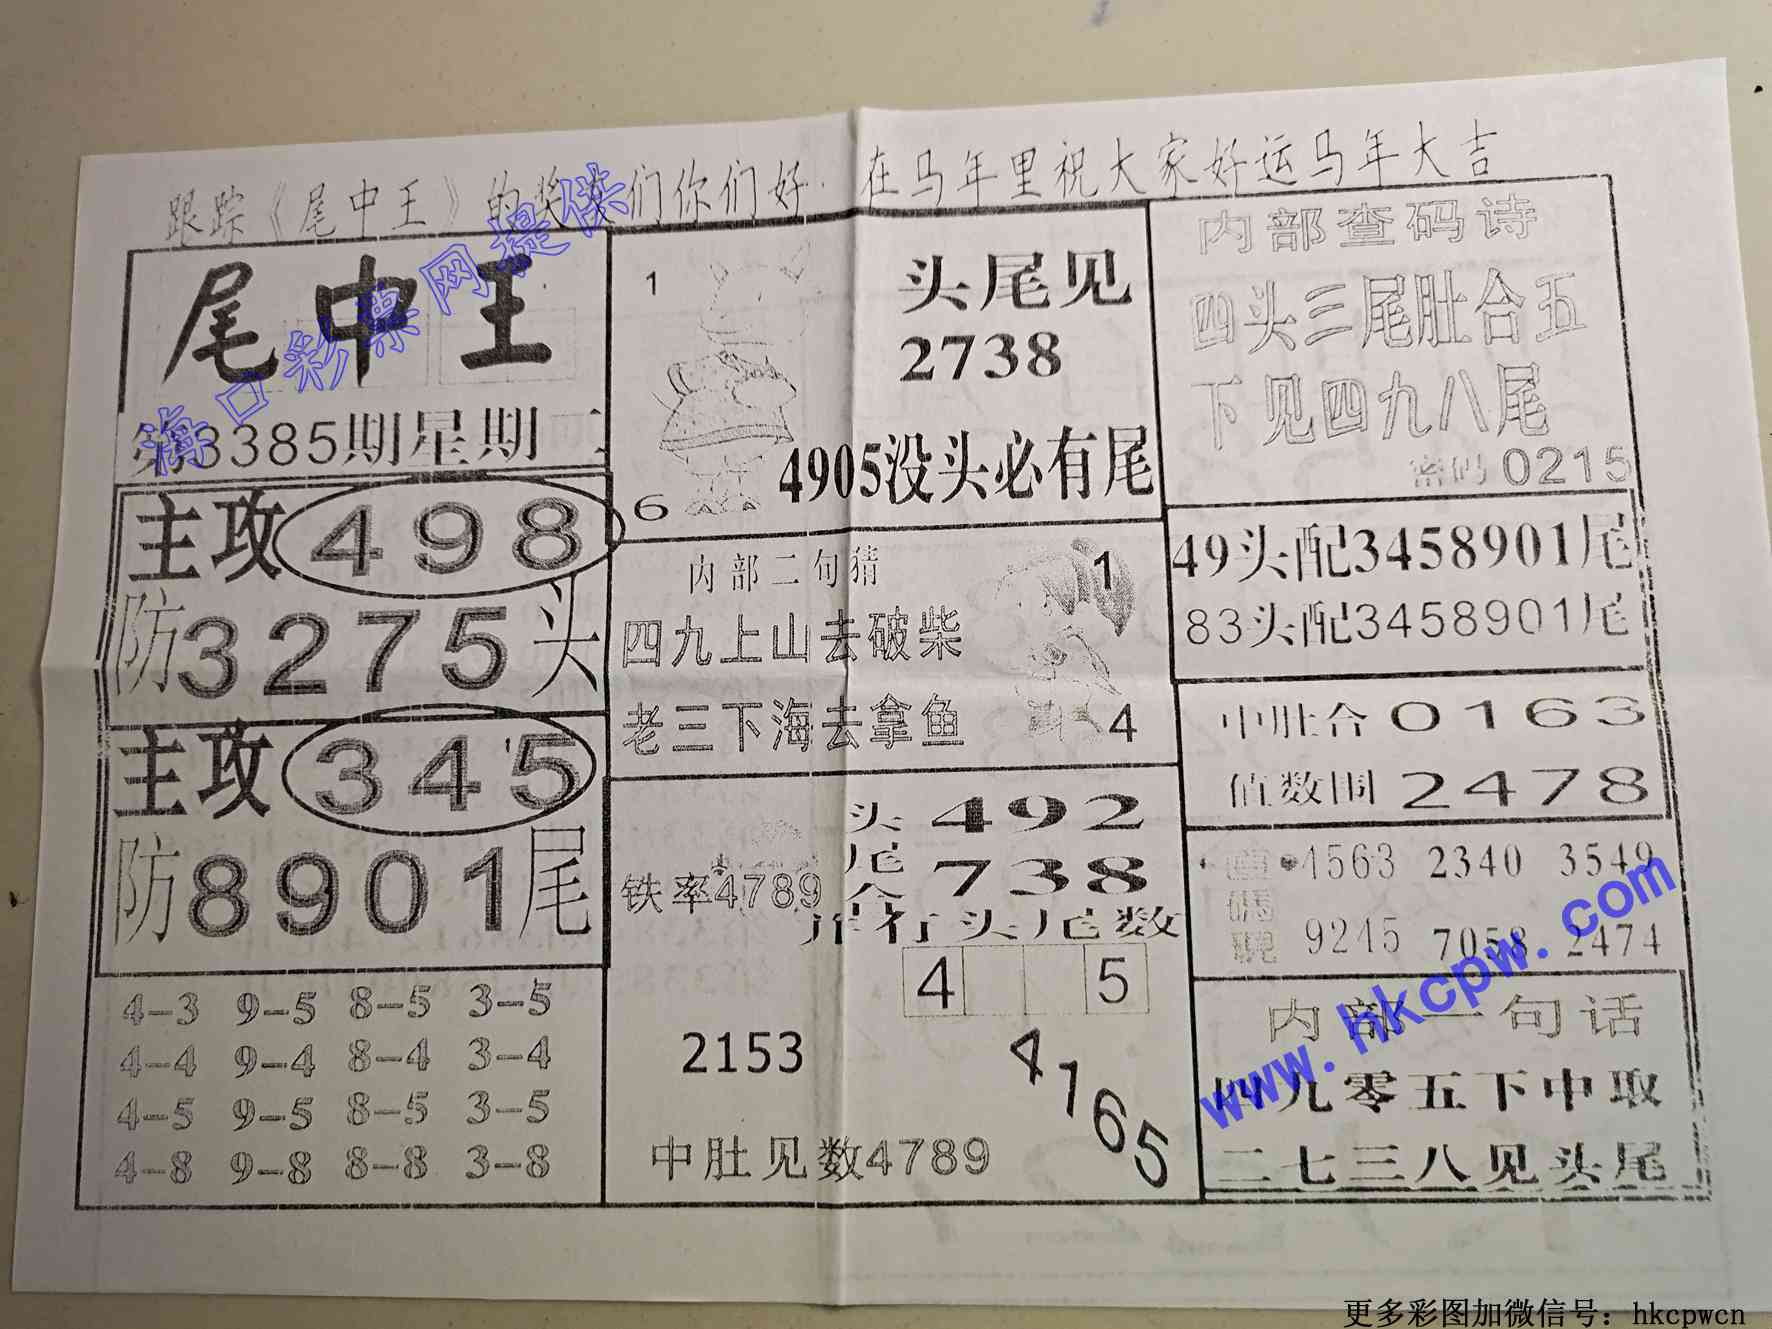 跟踪《尾中王》的奖友们你们好. 在马年里祝大家好运马年大吉
尾中王
第3385期星期二
主攻498
防3275头
主攻345
防8901尾
4-3 9-5 8-5 3-5
4-4 9-4 8-4 3-4
4-5 9-5 8-5 3-5
4-8 9-8 8-8 3-8
1
头尾见
2738
4905没头必有尾
6
内部二句猜
1
四九上山去破柴
老三下海去拿鱼
4
头492
尾738
合
铁率4789
准行头尾数
4 5
2153
4165
中肚见数4789
内部查码诗
四头三尾肚合五
下见四九八尾
密码0215
49头配3458901尾
83头配3458901尾
中肚合0163
值数围2478
4563 2340 3549
9245 7058 2474
内部一句话
四九零五下中取
二七三八见头尾
海口彩票网提供
www.hkcpw.com
更多彩图加微信号：hkcpwcn